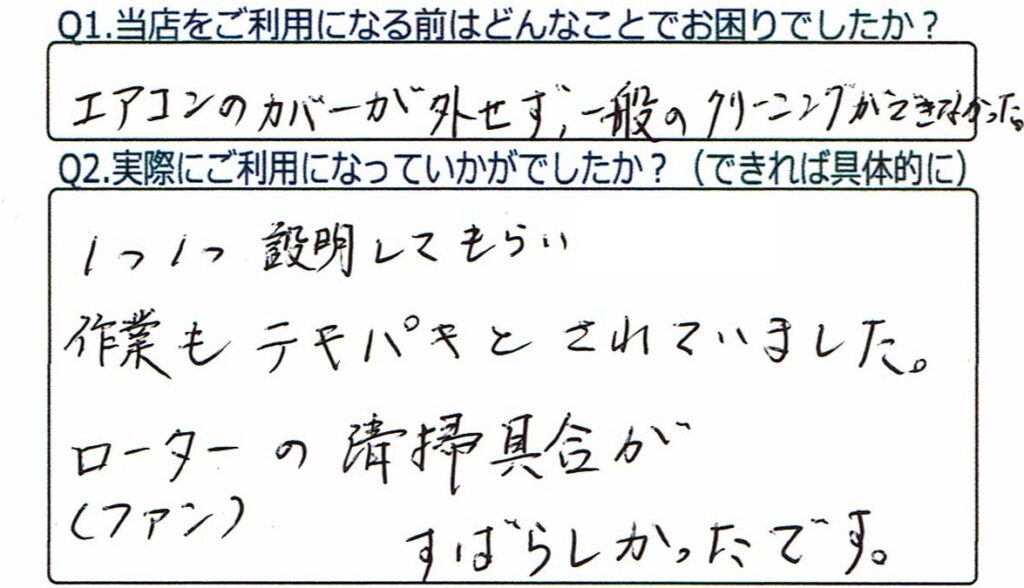 Q1.当店をご利用になる前はどんなことでお困りでしたか？
エアコンのカバーが外せず、一般のクリーニングができなかった。
Q2.実際にご利用になっていかがでしたか？（できれば具体的に）
1つ1つ 説明してもらい
作業もテキパキとされていました。
ローターの清掃具合が
(ファン)
すばらしかったです。